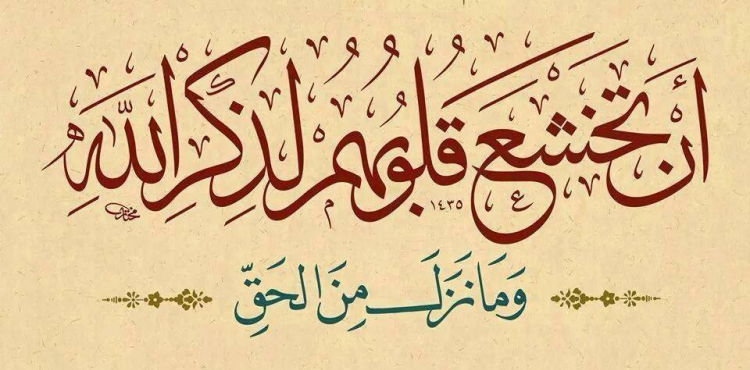 أَن تَخْشَعَ قُلُوبُهُمْ لِذِكْرِ اللَّهِ
١٤٣٥
وَمَا نَزَلَ مِنَ الحَقِّ